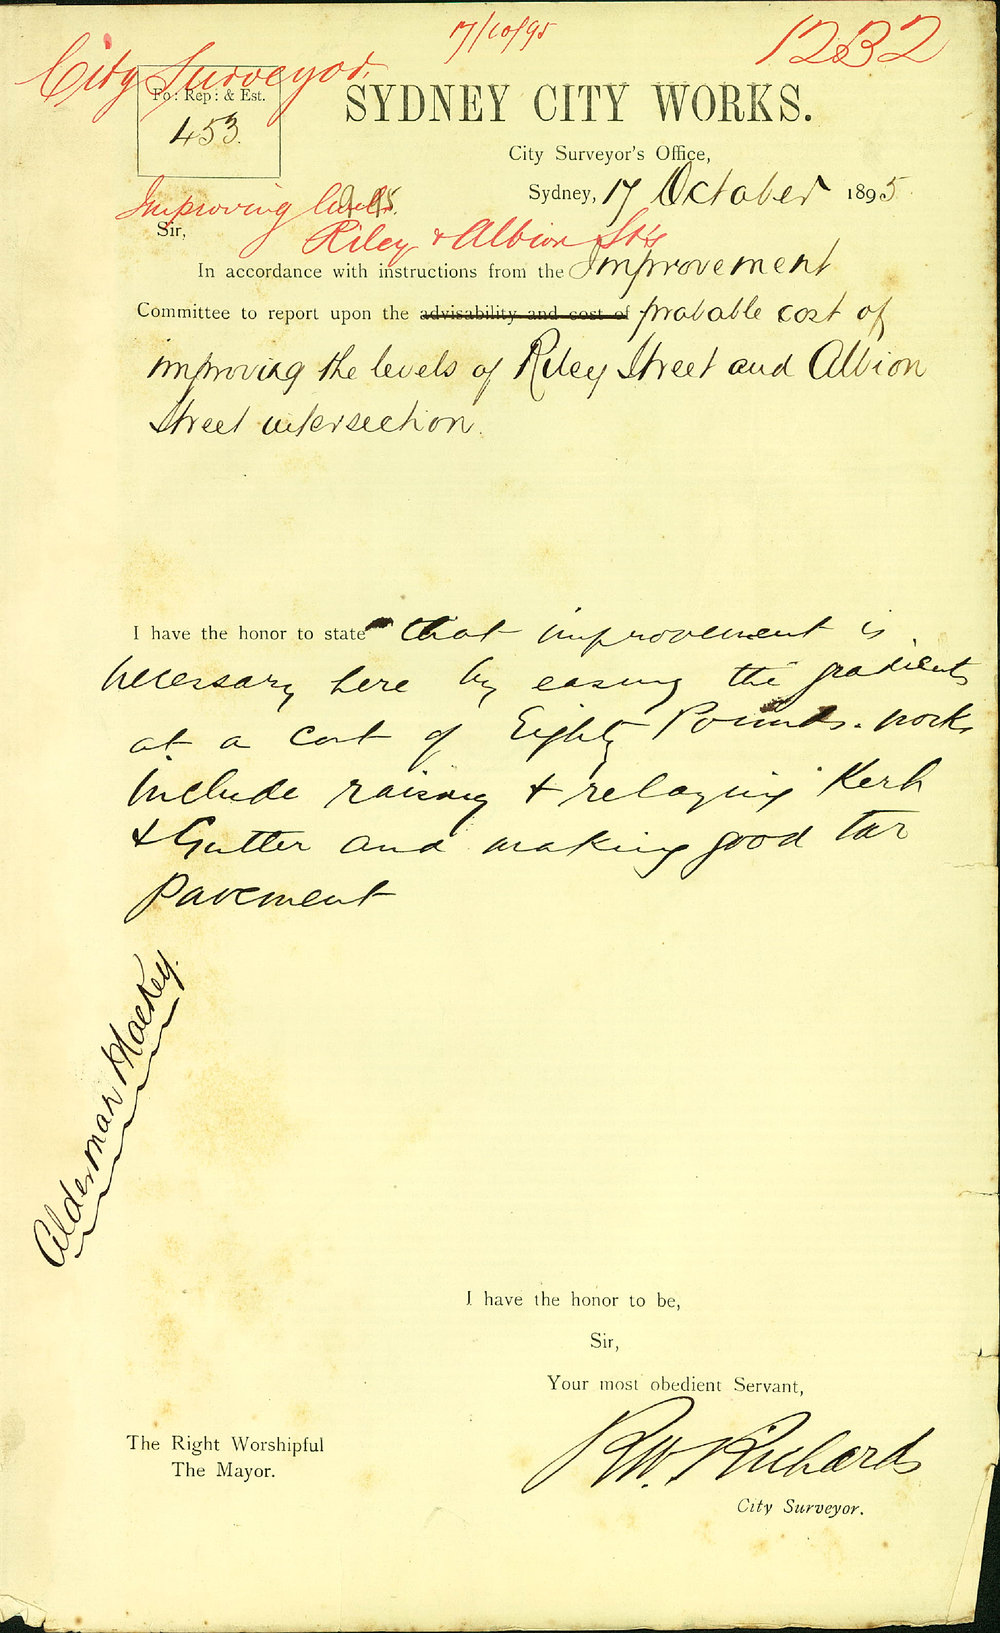 17/10/95
1232
City Surveyor.
Fo: Rep: & Est.
453.
SYDNEY CITY WORKS.
City Surveyor's Office,
Sydney, 17 October 1895.
Improving levels
Riley & Albion Sts
Sir,
In accordance with instructions from the Improvement
Committee to report upon the advisability and cost of probable cost of
improving the levels of Riley Street and Albion
Street intersection.
I have the honor to state that improvement is
necessary here by easing the gradients
at a cost of Eighty Pounds. works
include raising & relaying Kerb
& Gutter and making good tar
Pavement
Alderman
I have the honor to be,
Sir,
Your most obedient Servant,
The Right Worshipful
The Mayor.
RW. Richards
City Surveyor.